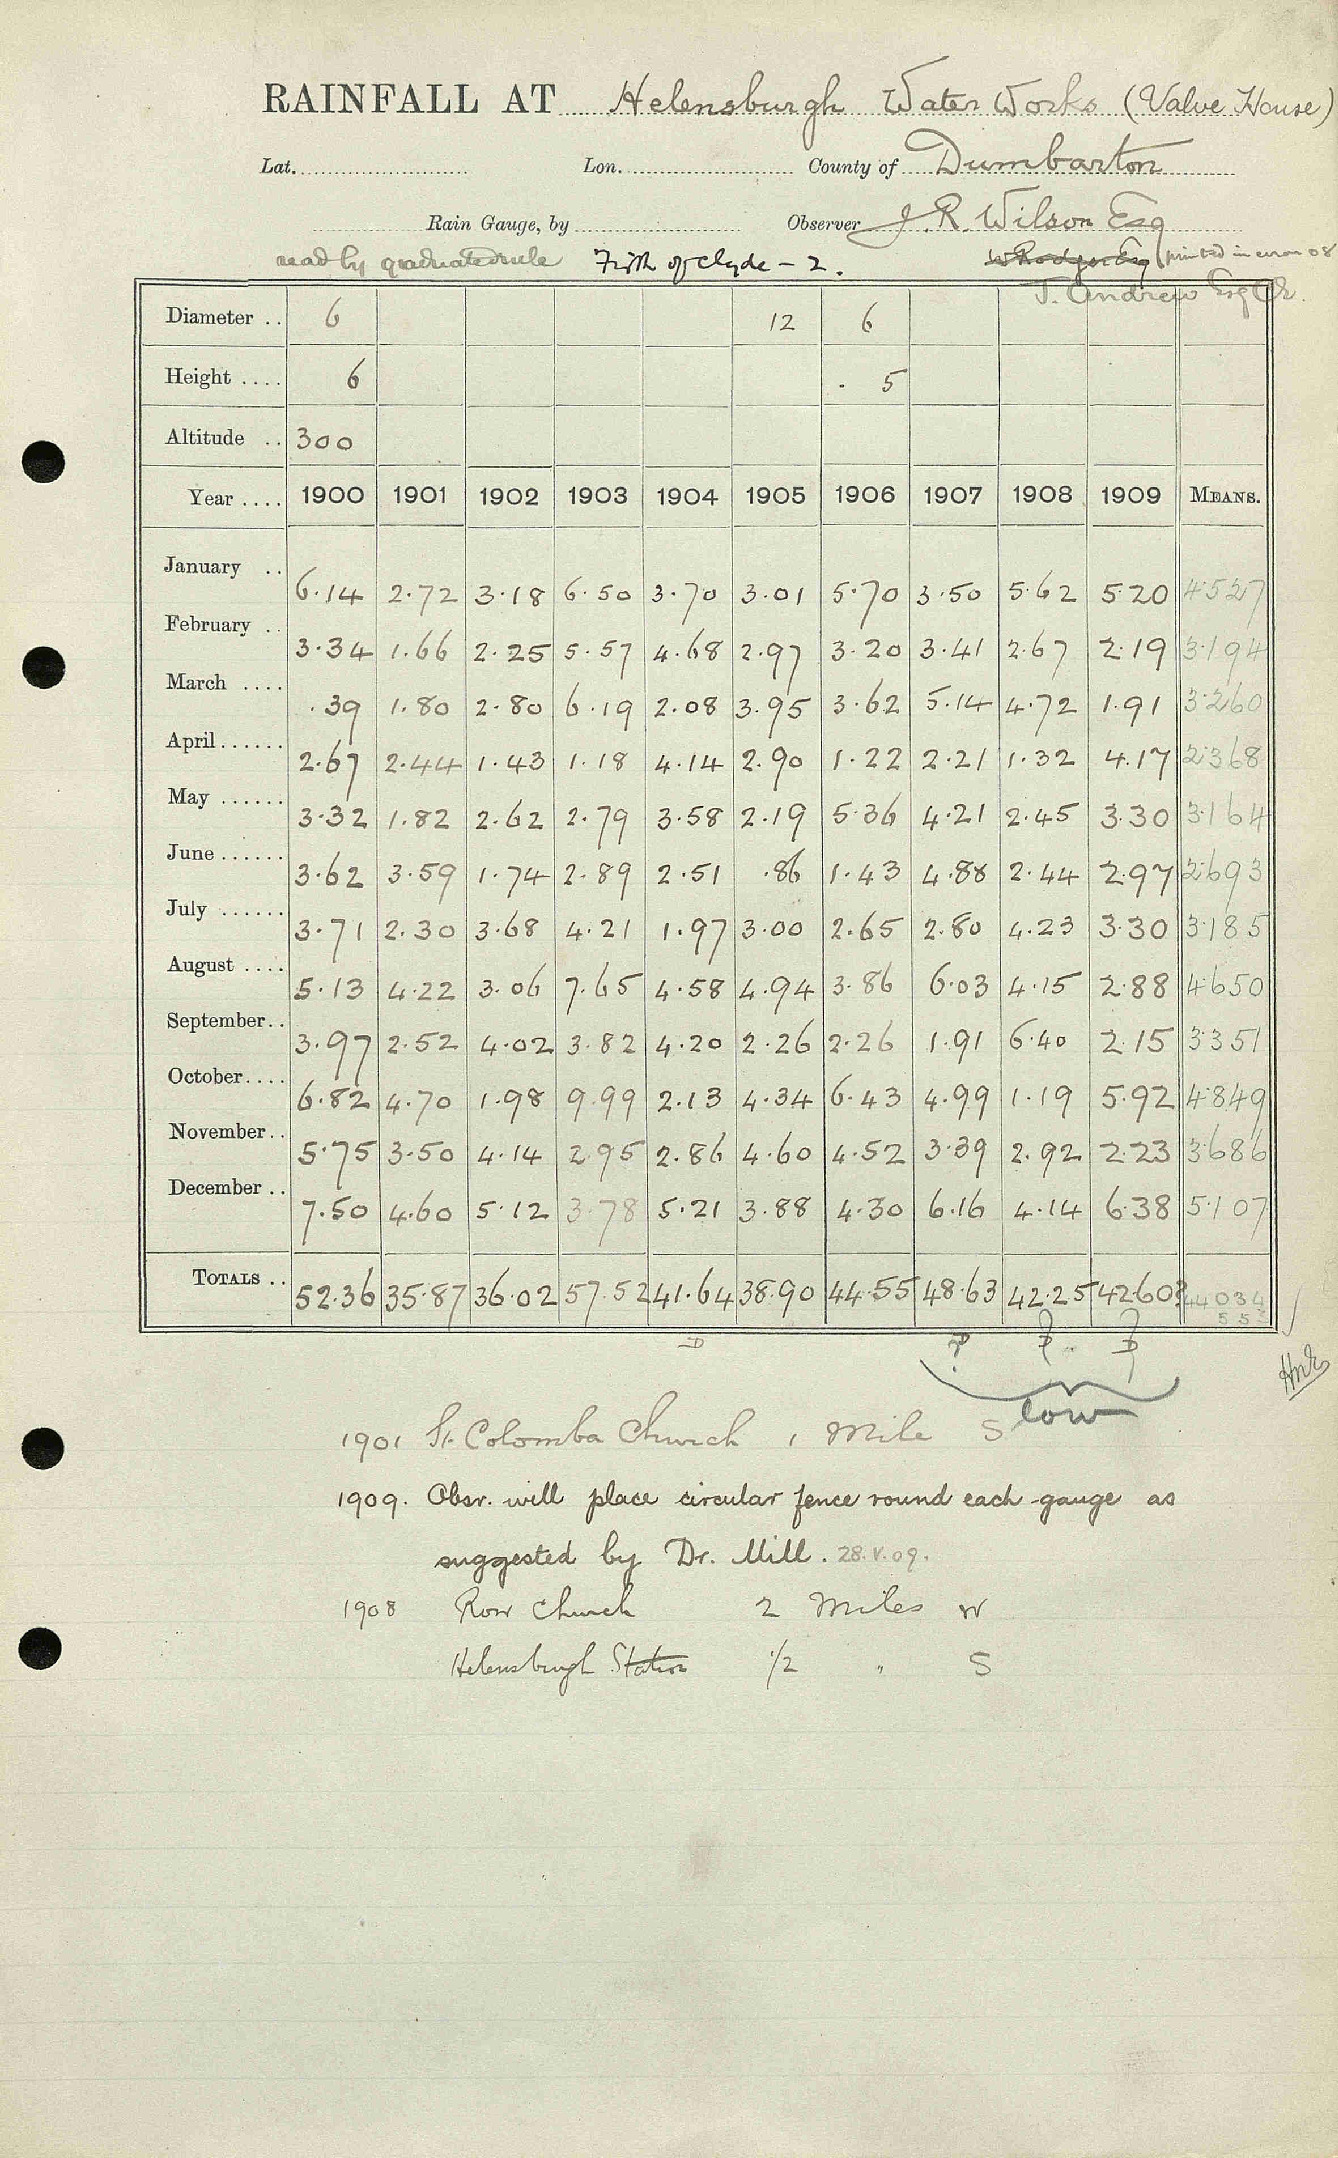 RAINFALL AT Helensburgh Water Works (Valve House)
Lat. Lon. County of Dumbarton
Rain Gauge, by Observer J. R. Wilson Esq
read by graduated rule Firth of Clyde - 2. W Rodger Esq (printed in error 08
J. Andrew Esq
Diameter .. 6 12 6
Height .... 6 . 5
Altitude .. 300
Year .... 1900 1901 1902 1903 1904 1905 1906 1907 1908 1909 MEANS.
January .. 6.14 2.72 3.18 6.50 3.70 3.01 5.70 3.50 5.62 5.20 4.527
February .. 3.34 1.66 2.25 5.57 4.68 2.97 3.20 3.41 2.67 2.19 3.194
March .... .39 1.80 2.80 6.19 2.08 3.95 3.62 5.14 4.72 1.91 3.260
April...... 2.67 2.44 1.43 1.18 4.14 2.90 1.22 2.21 1.32 4.17 2.368
May ...... 3.32 1.82 2.62 2.79 3.58 2.19 5.36 4.21 2.45 3.30 3.164
June ...... 3.62 3.59 1.74 2.89 2.51 .86 1.43 4.88 2.44 2.97 2.693
July ...... 3.71 2.30 3.68 4.21 1.97 3.00 2.65 2.80 4.23 3.30 3.185
August .... 5.13 4.22 3.06 7.65 4.58 4.94 3.86 6.03 4.15 2.88 4.650
September.. 3.97 2.52 4.02 3.82 4.20 2.26 2.26 1.91 6.40 2.15 3.351
October.... 6.82 4.70 1.98 9.99 2.13 4.34 6.43 4.99 1.19 5.92 4.849
November.. 5.75 3.50 4.14 2.95 2.86 4.60 4.52 3.39 2.92 2.23 3.686
December .. 7.50 4.60 5.12 3.78 5.21 3.88 4.30 6.16 4.14 6.38 5.107
TOTALS .. 52.36 35.87 36.02 57.52 41.64 38.90 44.55 48.63 42.25 42.60? 44.034
low
1901 St. Colomba Church 1 Mile S
1909. Obsr. will place circular fence round each gauge as
suggested by Dr. Mill. 28.V.09.
1908 Row Church 2 Miles W
Helensburgh Station 1/2 " S